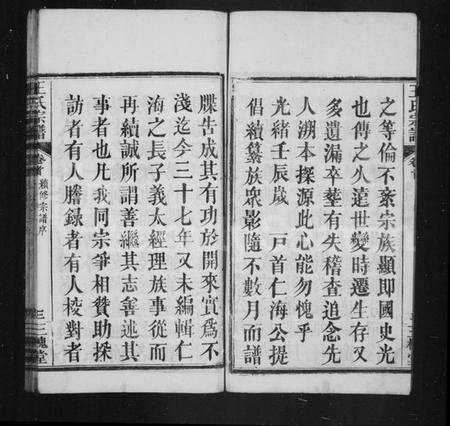 之等倫不紊宗族顯即國史光
也傳之久遠世變時遷生存又
多遺漏卒塟有失稽查追念先
人溯本探源此心能勿愧乎
光緒壬辰歲 戸首仁海公提
倡續纂族眾影隨不數月而譜
牒告成其有功於開來實爲不
淺迄今三十七年又未編輯仁
海之長子義太經理族事從而
再續誠所謂善繼其志善述其
事者也凡我同宗爭相贊助採
訪者有人謄錄者有人校對者
王氏宗譜 卷首 續修宗譜序 三 三槐堂